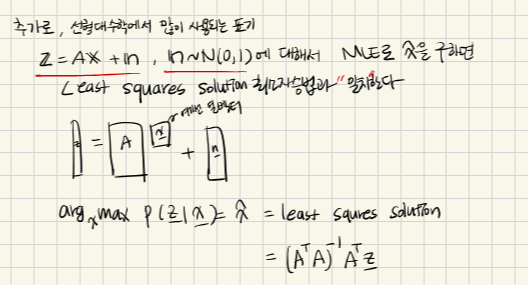 추가로, 선형대수학에서 많이 사용되는 표기
z = Ax + n, n~N(0,1)에 대해서 MLE로 x̂을 구하면
Least squares solution 최소자승법과 "일치한다"
z = A x + n
arg_x max P(z|x) = x̂ = least squres solution
= (AᵀA)⁻¹Aᵀz